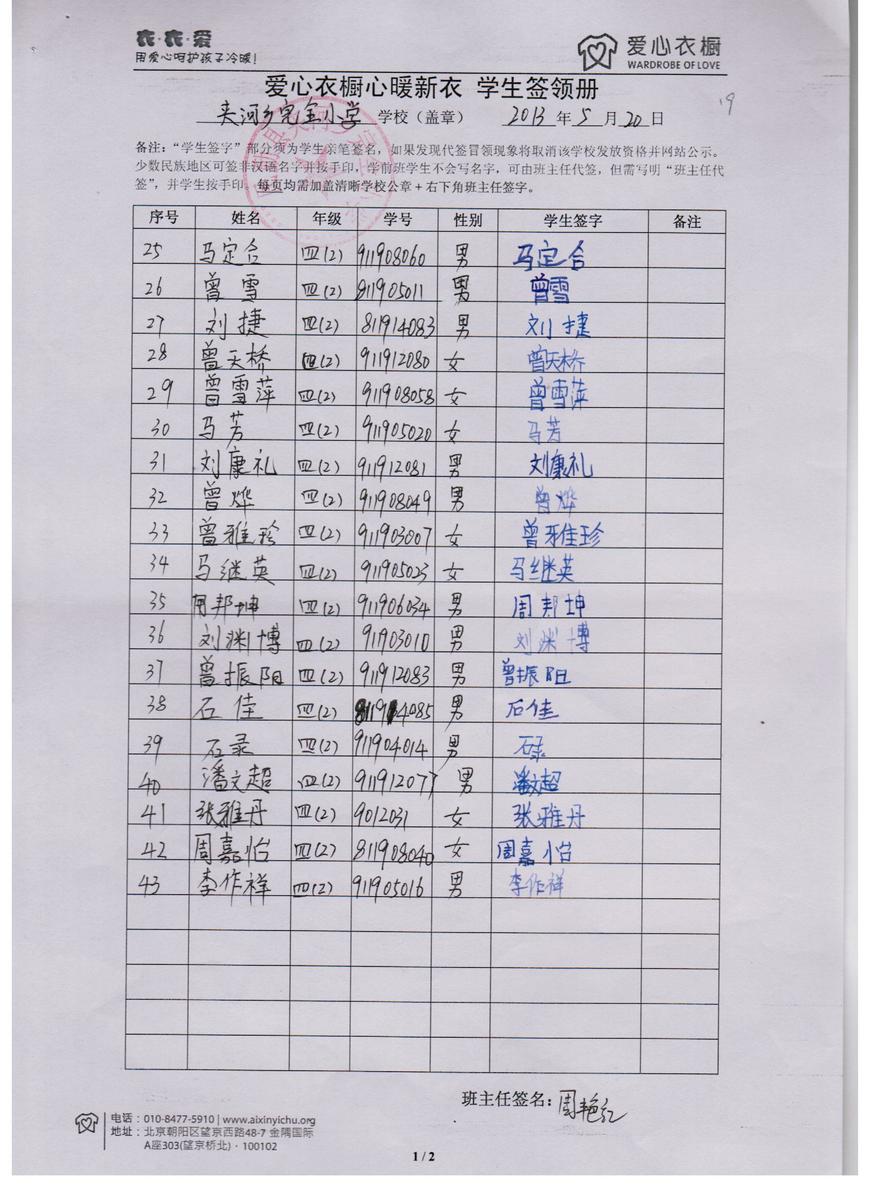 衣·衣·爱
用爱心呵护孩子冷暖!
爱心衣橱
WARDROBE OF LOVE
19
爱心衣橱心暖新衣 学生签领册
夹河乡完全小学 学校（盖章） 2013 年 5 月 20 日
备注：“学生签字”部分须为学生亲笔签名，如果发现代签冒领现象将取消该学校发放资格并网站公示。
少数民族地区可签非汉语名字并按手印，学前班学生不会写名字，可由班主任代签，但需写明“班主任代
签”，并学生按手印。每页均需加盖清晰学校公章+右下角班主任签字。
序号 姓名 年级 学号 性别 学生签字 备注
25 马定合 四(2) 911908060 男 马定合
26 曾雪 四(2) 811905011 男 曾雪
27 刘捷 四(2) 811914083 男 刘捷
28 曾天桥 四(2) 911912080 女 曾天桥
29 曾雪萍 四(2) 911908058 女 曾雪萍
30 马芳 四(2) 911905020 女 马芳
31 刘康礼 四(2) 911912081 男 刘康礼
32 曾烨 四(2) 911908049 男 曾烨
33 曾雅珍 四(2) 911903007 女 曾雅珍
34 马继英 四(2) 911905023 女 马继英
35 周邦坤 四(2) 911906034 男 周邦坤
36 刘渊博 四(2) 911903010 男 刘渊博
37 曾振阳 四(2) 911912083 男 曾振阳
38 石佳 四(2) 811914085 男 石佳
39 石录 四(2) 911904014 男 石录
40 潘文超 四(2) 911912077 男 潘文超
41 张雅丹 四(2) 9012031 女 张雅丹
42 周嘉怡 四(2) 811908040 女 周嘉怡
43 李作祥 四(2) 911905016 男 李作祥
班主任签名：周艳红
电话：010-8477-5910 | www.aixinyichu.org
地址：北京朝阳区望京西路48-7 金隅国际
A座303(望京桥北)·100102
1 / 2